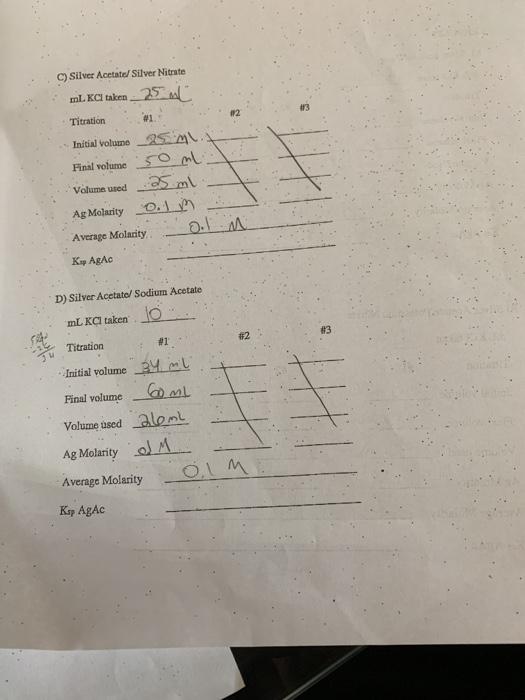 C) Silver Acetate/ Silver Nitrate
mL KCl taken 25 ml
Titration #1 #2 #3
Initial volume 25 ml
Final volume 50 ml
Volume used 25 ml
Ag Molarity 0.1 M
Average Molarity 0.1 M
Ksp AgAc
D) Silver Acetate/ Sodium Acetate
mL KCl taken 10
Titration #1 #2 #3
Initial volume 34 ml
Final volume 60 ml
Volume used 26 ml
Ag Molarity .1 M
Average Molarity 0.1 M
Ksp AgAc